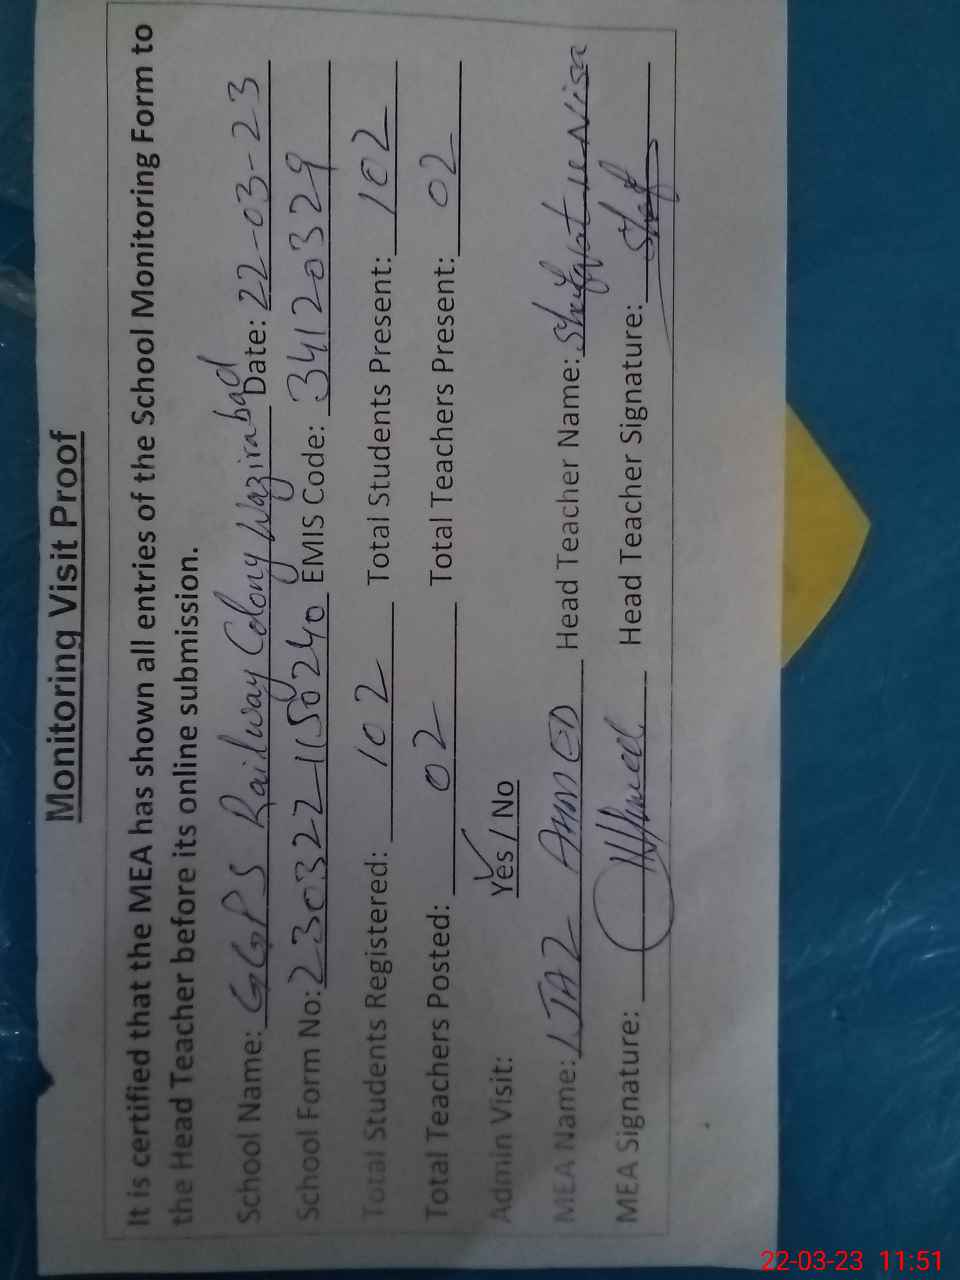 Monitoring Visit Proof
It is certified that the MEA has shown all entries of the School Monitoring Form to
the Head Teacher before its online submission.
School Name: GGPS Railway Colony Wazirabad Date: 22-03-23
School Form No: 230322-1150240 EMIS Code: 34120329
Total Students Registered: 102 Total Students Present: 102
Total Teachers Posted: 02 Total Teachers Present: 02
Admin Visit: Yes / No
MEA Name: IJAZ AHMED Head Teacher Name: Shafqat un Nisa
MEA Signature: Ahmed Head Teacher Signature:
22-03-23 11:51